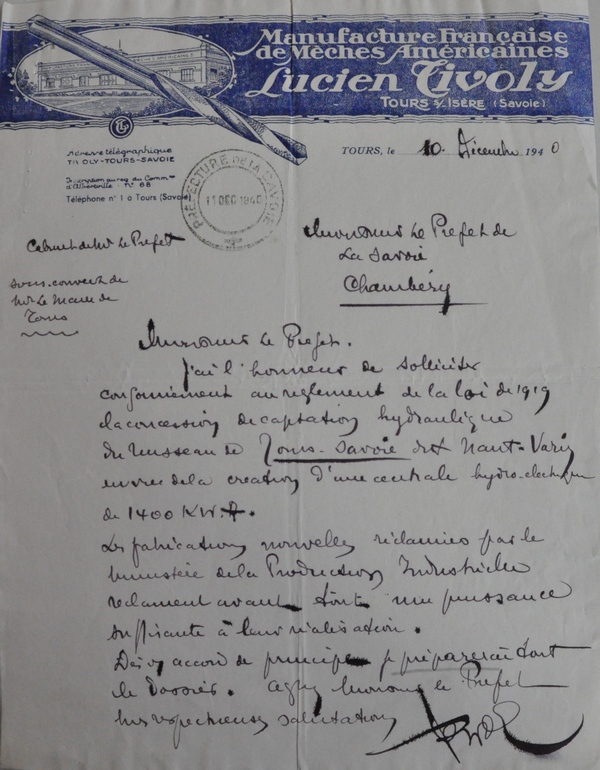 Manufacture Française
de Mèches Américaines
Lucien Tivoly
TOURS S/ISÈRE (Savoie)
Adresse télégraphique
TIVOLY-TOURS-SAVOIE
Inscription au reg. du Comm.
d'Albertville - N° 68
Téléphone n° 1 à Tours (Savoie)
TOURS, le 10 Décembre 1940
PRÉFECTURE DE LA SAVOIE
11 DEC 1940
Cabinet de Mr Le Préfet
Monsieur Le Préfet de
La Savoie
Chambéry
sous-couvert de
Mr Le Maire de
Tours
Monsieur Le Préfet.
J'ai l'honneur de solliciter
conformément au règlement de la loi de 1919
la concession de captation hydraulique
du ruisseau de Tours-Savoie dit Nant-Varin
en vue de la création d'une centrale hydro-électrique
de 1400 KW.
Les fabrications nouvelles réclamées par le
Ministère de la Production Industrielle
réclament avant tout une puissance
suffisante à leur réalisation.
Dès accord de principe je préparerai tout
le dossier. Agréez Monsieur le Préfet
mes respectueuses salutations